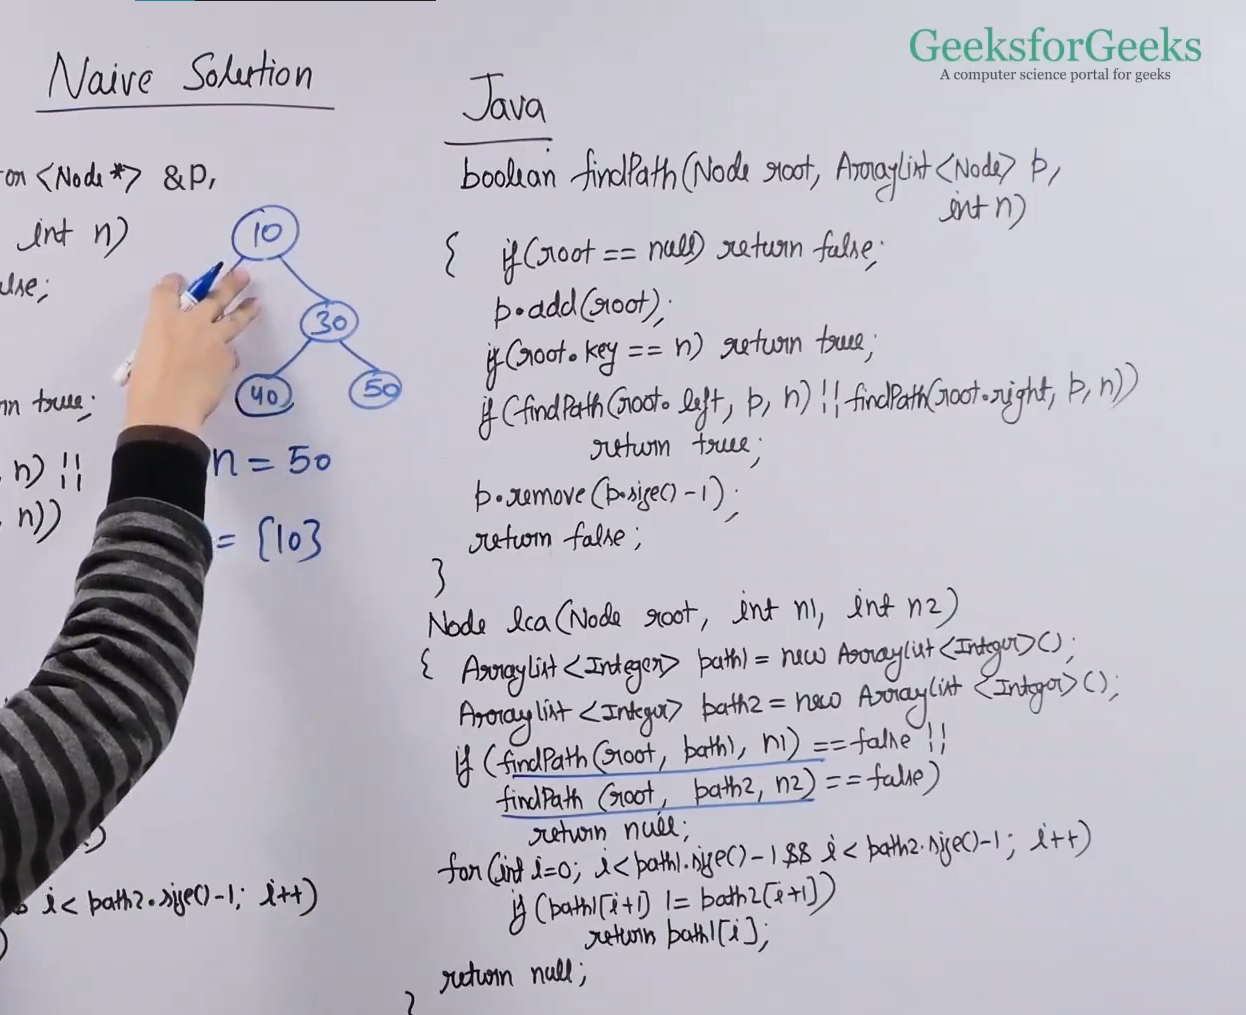 GeeksforGeeks
A computer science portal for geeks
Naive Solution
<Node*> &P,
int n)
10
30
40
50
true;
n) ||
n))
n = 50
= {10}
i < path2.size()-1; i++)
Java
boolean findPath(Node root, ArrayList<Node> p,
int n)
{ if(root == null) return false;
p.add(root);
if(root.key == n) return true;
if(findPath(root.left, p, n) || findPath(root.right, p, n))
return true;
p.remove(p.size()-1);
return false;
}
Node lca(Node root, int n1, int n2)
{ ArrayList<Integer> path1 = new ArrayList<Integer>();
ArrayList<Integer> path2 = new ArrayList<Integer>();
if (findPath(root, path1, n1) == false ||
findPath (root, path2, n2) == false)
return null;
for(int i=0; i<path1.size()-1 && i < path2.size()-1; i++)
if (path1[i+1] != path2[i+1])
return path1[i];
return null;
}